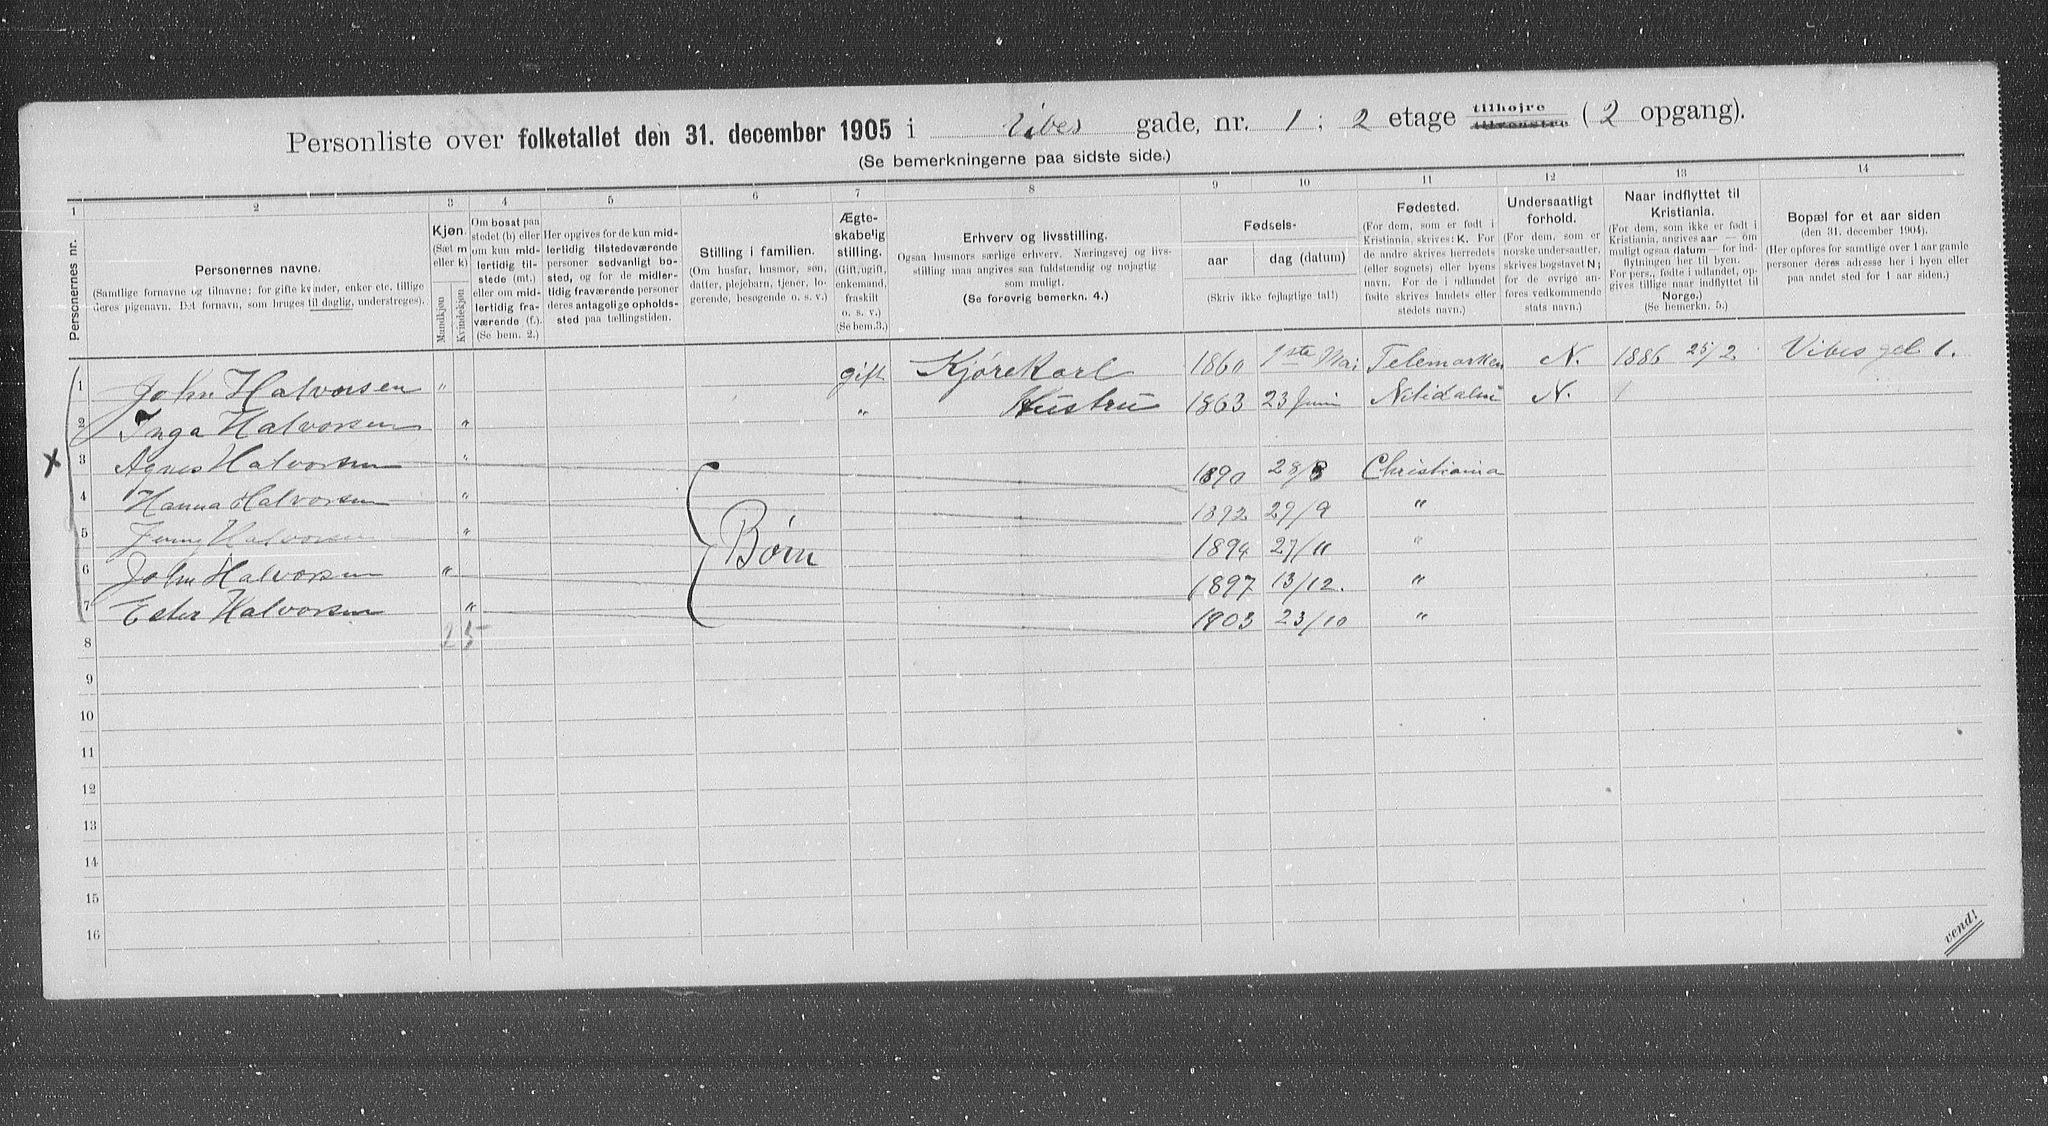 Personliste over folketallet den 31. december 1905 i Vibes gade, nr. 1; 2 etage tilhøjre tilvenstre (2 opgang).
(Se bemerkningerne paa sidste side.)
1 2 3 4 5 6 7 8 9 10 11 12 13 14
Personernes nr.
Personernes navne.
(Samtlige fornavne og tilnavne; for gifte kvinder, enker etc. tillige
deres pigenavn. Det fornavn, som bruges til daglig, understreges).
Kjøn
(Sæt m
eller k)
Mandkjøn
Kvindekjøn
Om bosat paa
stedet (b) eller
om kun mid-
lertidig til-
stede (mt.)
eller om mid-
lertidig fra-
værende (f.).
(Se bem. 2.)
Her opgives for de kun mid-
lertidig tilstedeværende
personer sedvanligt bo-
sted, og for de midler-
tidig fraværende personer
deres antagelige opholds-
sted paa tællingstiden.
Stilling i familien.
(Om husfar, husmor, søn,
datter, plejebarn, tjener, lo-
gerende, besøgende o. s. v.)
Ægte-
skabelig
stilling.
(Gift, ugift,
enkemand,
fraskilt
o. s. v.)
(Se bem.3.)
Erhverv og livsstilling.
Ogsaa husmors særlige erhverv. Næringsvej og livs-
stilling maa angives saa fuldstændig og nøjagtig
som muligt.
(Se forøvrig bemerkn. 4.)
Fødsels-
aar dag (datum)
(Skriv ikke fejlagtige tal!)
Fødested.
(For dem, som er født i
Kristiania, skrives: K. For
de andre skrives herredets
(eller sognets) eller byens
navn. For de i udlandet
fødte skrives landets eller
stedets navn.)
Undersaatligt
forhold.
(For dem, som er
norske undersaatter,
skrives bogstavet N;
for de øvrige an-
føres vedkommende
stats navn.)
Naar indflyttet til
Kristiania.
(For dem, som ikke er født i
Kristiania, angives aar — om
muligt ogsaa datum — for ind-
flytningen her til byen.
For pers., fødte i udlandet, op-
gives tillige naar indflyttet til
Norge.)
(Se bemerkn. 5.)
Bopæl for et aar siden
(den 31. december 1904).
(Her opføres for samtlige over 1 aar gamle
personer deres adresse her i byen eller
paa andet sted for 1 aar siden.)
1 John Halvorsen " gift Kjørekarl 1860 1ste Mai Telemarken N. 1886 25/2 Vibes gd 1.
2 Inga Halvorsen " " Hustru 1863 23 Juni Nitidalen N.
3 Agnes Halvorsen " 1890 28/8 Christiania
4 Hanna Halvorsen " 1892 29/9 "
5 Jenny Halvorsen " Børn 1894 27/11 "
6 John Halvorsen " 1897 13/12. "
7 Ester Halvorsen " 1903 23/10 "
8 2 5
9
10
11
12
13
14
15
16
vend!